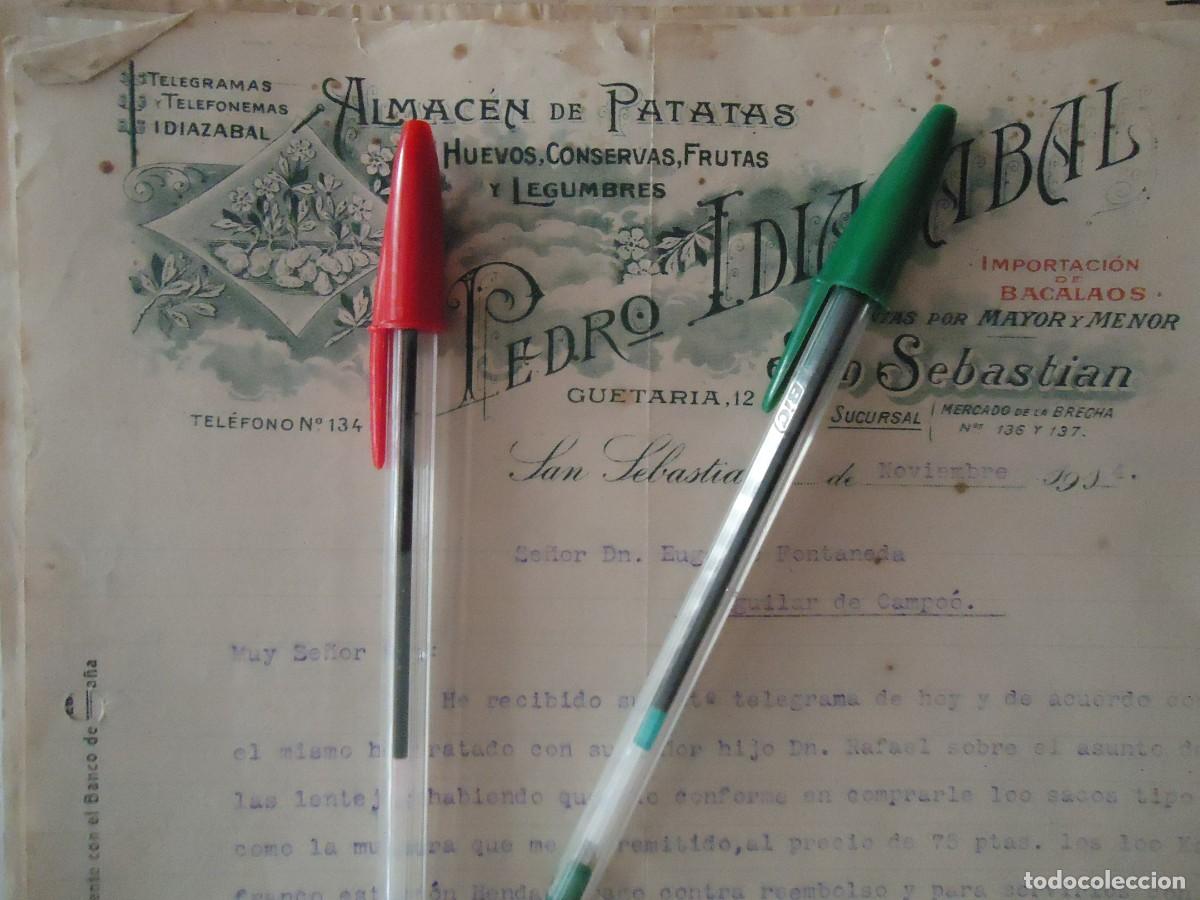 TELEGRAMAS
Y TELEFONEMAS
IDIAZABAL
ALMACÉN DE PATATAS
HUEVOS, CONSERVAS, FRUTAS
Y LEGUMBRES
PEDRO IDIA ABAL
IMPORTACIÓN
DE
BACALAOS.
TAS POR MAYOR Y MENOR
n Sebastian
GUETARIA, 12
SUCURSAL MERCADO DE LA BRECHA
Nos 136 Y 137.
TELÉFONO Nº 134
San Sebastia de Noviembre 1914.
BIC
Señor Dn. Eug Fontaneda
guilar de Campoó.
Muy Señor :
He recibido su tª telegrama de hoy y de acuerdo co
el mismo h ratado con su or hijo Dn. Rafael sobre el asunto d
las lentej habiendo que conforme en comprarle 1oo sacos tipo
como la mu ra que me remitido, al precio de 75 ptas. los 1oo K
franco est ón Henda contra reembolso y para
ente con el Banco de aña
todocoleccion